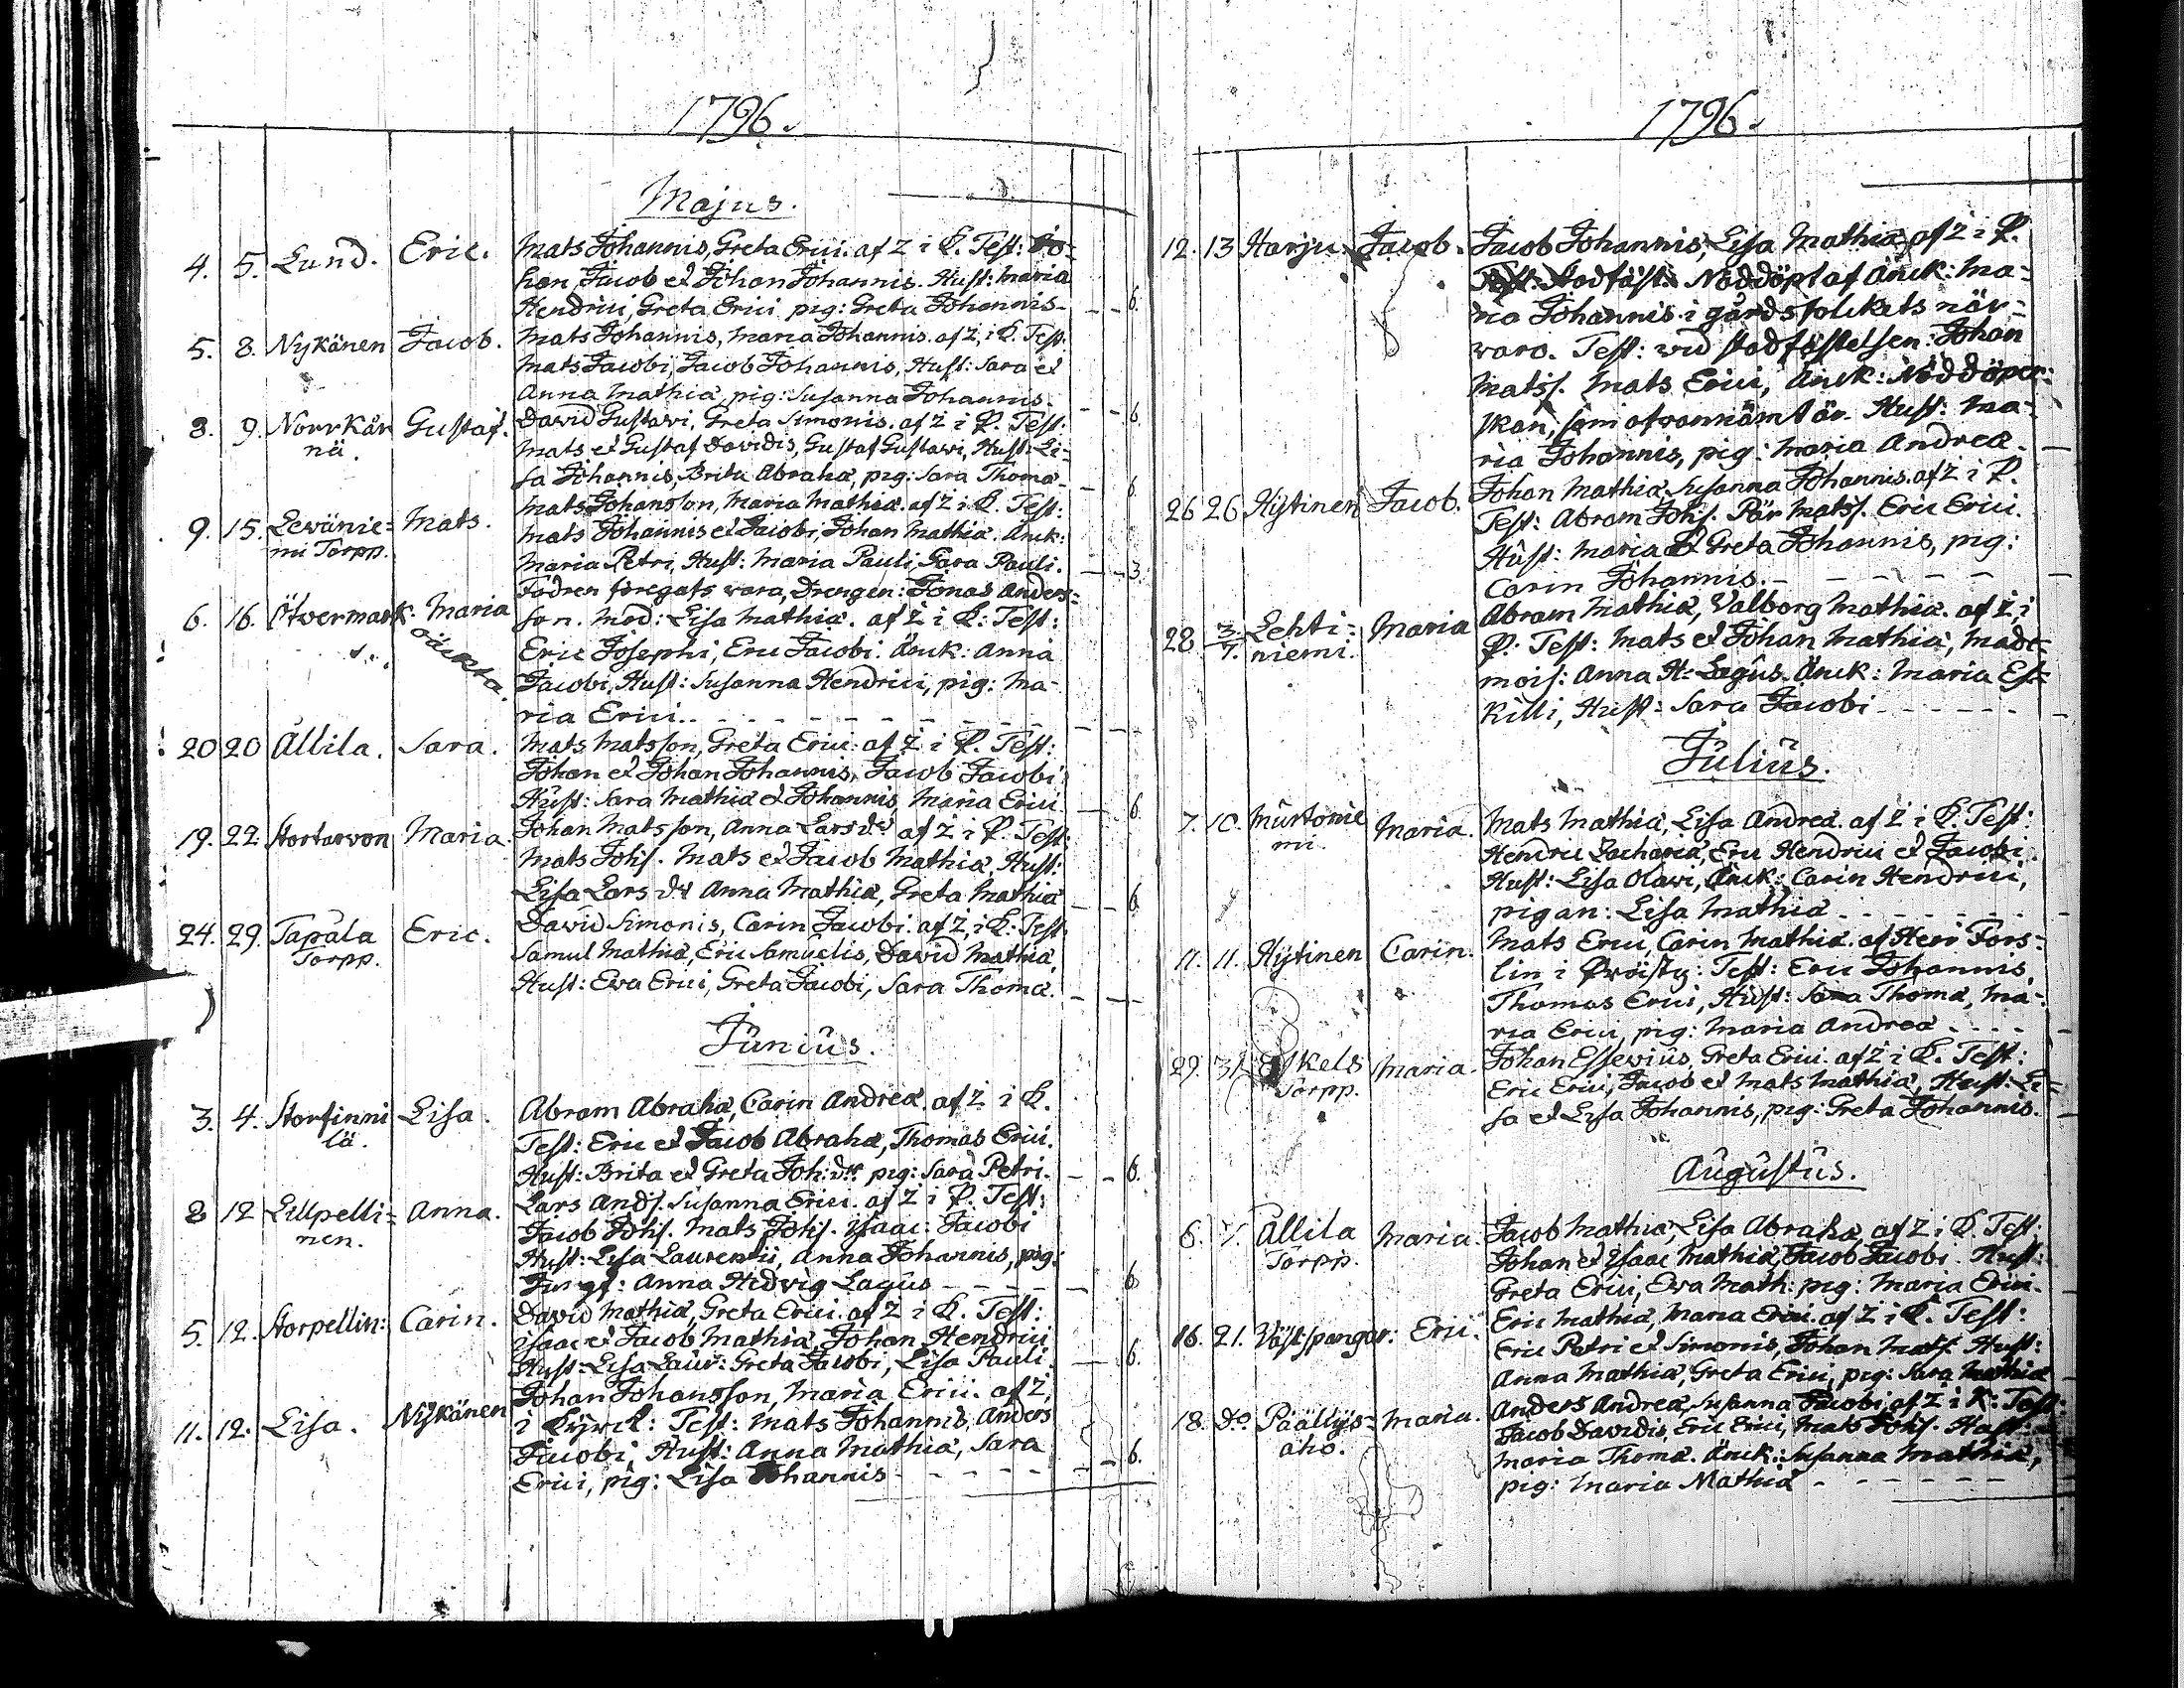 1796.
Majus.
4. 5. Lund. Eric. Mats Johannis, Greta Erici. af Z i K. Test: Jo-
han, Jacob et Johan Johannis. Hust: Maria
Hendrici, Greta Erici, pig: Greta Johannis - - 6.
5. 8. Nykänen Jacob. Mats Johannis, Maria Johannis. af Z. i K. Test:
Mats Jacobi, Jacob Johannis, Hust: Sara et
Anna Mathiæ, pig: Susanna Johannis. - - 6
8. 9. Norrkär Gustaf. David Gustavi, Greta Simonis. af Z i P. Test:
nä. Mats et Gustaf Davidis, Gustaf Gustavi, Hust: Li-
sa Johannis, Brita Abrahæ, pig: Sara Thomæ - - 6
9. 15. Levänie= Mats. Mats Johansson, Maria Mathiæ. af Z i K. Test:
mi Torpp. Mats Johannis et Jacobi, Johan Mathiæ. Änck:
Maria Petri, Hust: Maria Pauli, Sara Pauli. - - 3
6. 16. Ötvermark. Maria oäckta. Fadren föregafs vara, Drengen: Jonas Anders=
son. Mod: Lisa Mathiæ. af Z i K: Test:
Eric Josephi, Eric Jacobi. Änck: Anna
Jacobi, Hust: Susanna Hendrici, pig: Ma-
ria Erici. - - - - - - - - -
20 20 Ällila. Sara. Mats Matsson, Greta Erici. af Z i P. Test:
Johan et Johan Johannis, Jacob Jacobi
Hust: Sara Mathiæ et Johannis Maria Erici - 6
19. 22. Stortarvon Maria. Johan Matsson, Anna Larsdr af Z i P. Test:
Mats Johs. Mats et Jacob Mathiæ, Hust:
Lisa Lars dr Anna Mathiæ, Greta Mathiæ - - 6
24. 29. Tapala Eric. David Simonis, Carin Jacobi. af Z. i K: Test:
Torpp. Samul Mathiæ, Eric Samuelis, David Mathiæ,
Hust: Eva Erici, Greta Jacobi, Sara Thomæ. - -
Junius.
3. 4. Storfinni Lisa. Abram Abrahæ, Carin Andreæ. af Z i K.
lä. Test: Eric et Jacob Abrahæ, Thomas Erici.
Hust: Brita et Greta Joh: dr. pig: Sara Petri. - - 6.
8 12 Lillpelli= Anna. Lars Ands. Susanna Erici. af Z i P. Test:
nen. Jacob Johs. Mats Johs. Isaac: Jacobi
Hust: Lisa Laurentii, Anna Johannis, pig:
Jungf: Anna Hedvig Lagus - - - - 6
5. 12. Storpellin: Carin. David Mathiæ, Greta Erici. af Z i K. Test:
Isaac et Jacob Mathiæ, Johan Hendrici
Hust: Lisa Laur: Greta Jacobi, Lisa Pauli. - 6.
11. 12. Lisa. Nykänen Johan Johansson, Maria Erici. af Z.
i Test: Mats Johannis, Anders
Jacobi, Hust: Anna Mathiæ, Sara - 6.
Erici, pig: Lisa Johannis - - - - - -
1796.
12. 13 Harju. Jacob. Jacob Johannis, Lisa Mathiæ af Z i P.
Nöddöpt af Änck: Ma-
ria Johannis i gårds folckets när-
varo. Test: vid stadfästelsen: Johan
Matss. Mats Erici, Änck: Nöddöper-
skan, som ofvannämt är. Hust: Ma-
ria Johannis, pig: Maria Andreæ. -
26 26 Hytinen Jacob. Johan Mathiæ, Susanna Johannis. af Z i P.
Test: Abram Johs. Pär Matss. Eric Erici.
Hust: Maria et Greta Johannis, pig:
Carin Johannis. - - - - - - -
28 3/7. Lehti= Maria Abram Mathiæ, Valborg Mathiæ. af Z. i
niemi. P. Test: Mats et Johan Mathiæ, Made-
mois: Anna H: Lagus. Änck: Maria Es=
killi, Hust: Sara Jacobi - - - - - - -
Julius.
7. 10. Murtonie Maria. Mats Mathiæ, Lisa Andreæ. af Z i K. Test:
mi. Hendric Zachariæ, Eric Hendrici et Jacobi.
Hust: Lisa Olavi, Änck: Carin Hendrici,
pigan: Lisa Mathiæ - - - - - - - -
11. 11. Hytinen Carin. Mats Erici, Carin Mathiæ. af Herr Fors-
lin i Test: Eric Johannis,
Thomas Erici, Hust: Sara Thomæ, Ma-
ria Erici, pig: Maria Andreæ - - - - -
29. 31. Eskels Maria. Johan Essevius, Greta Erici. af Z i K. Test:
Torpp. Eric Erici, Jacob et Mats Mathiæ, Hust: Li=
sa et Lisa Johannis, pig: Greta Johannis. -
Augustus.
6. 7. Ällila Maria. Jacob Mathiæ, Lisa Abrahæ, af Z i K. Test:
Torpp. Johan et Isaac Mathiæ, Jacob Jacobi. Hust:
Greta Erici, Eva Math: pig: Maria Erici. -
16. 21. Västspangar: Eric. Eric Mathiæ, Maria Erici. af Z i K. Test:
Eric Petri et Simonis, Johan Mats. Hust:
Anna Mathiæ, Greta Erici, pig: Sara Mathiæ -
18. Do. Päällys= Maria. Anders Andreæ, Susanna Jacobi, af Z i K: Test:
aho. Jacob Davidis, Eric Erici, Mats Johs. Hust:
Maria Thomæ. Änck: Susanna Mathiæ,
pig: Maria Mathiæ - - - - - -